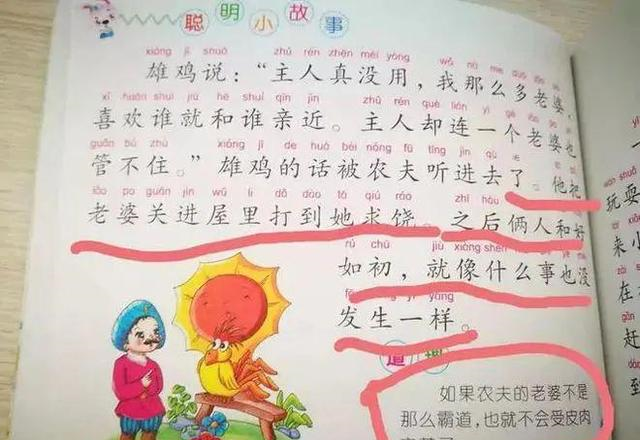 聪明小故事
xióng jī shuō zhǔ rén zhēn méi yòng
雄鸡说：“主人真没用，我那么多老婆，
xǐ huān shuí jiù hé shuí qīn jìn zhǔ rén què lián yí gè
喜欢谁就和谁亲近。主人却连一个老婆也
guǎn bú zhù xióng jī de huà bèi nóng fū tīng jìn qù
管不住。”雄鸡的话被农夫听进去了。他把
lǎo pó guān jìn wū lǐ dǎ dào tā qiú ráo zhī hòu
老婆关进屋里打到她求饶。之后俩人和好
rú chū jiù xiàng shén
如初，就像什么事也没
yí yàng
发生一样。
道理
如果农夫的老婆不是
那么霸道，也就不会受皮肉
玩耍
来小
在
赶
到